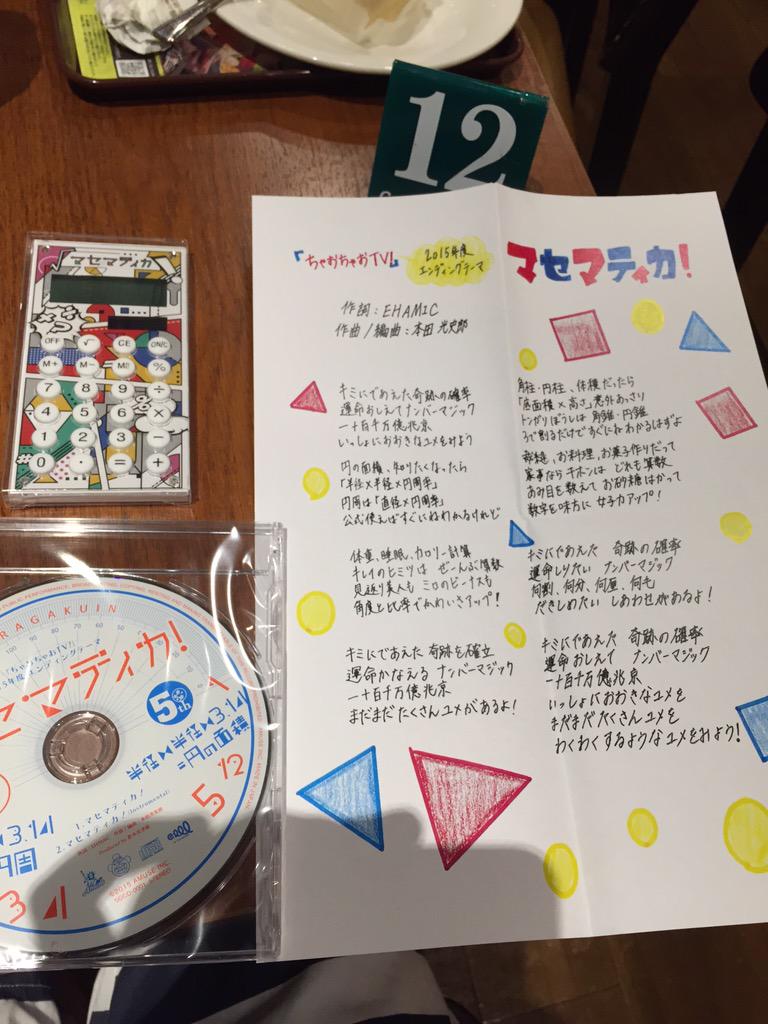 12
マセマティカ
OFF √ CE ON/C
M+ M- MR %
7 8 9 ÷
4 5 6 ×
1 2 3 -
0 · = +
『ちゃおちゃおTV!』
2015年度
エンディングテーマ
作詞：EHAMIC
作曲/編曲：本田光史郎
キミにであえた奇跡の確率
運命おしえてナンバーマジック
一十百千万億兆京
いっしょにおおきなユメをみよう
円の面積、知りたくなったら
「半径×半径×円周率」
円周は「直径×円周率」
公式使えばすぐにねわかるけれど
体重、睡眠、カロリー計算
キレイのヒミツは ぜーんぶ算数
見返り美人も ミロのビーナスも
角度と比率でかわいさアップ！
キミにであえた 奇跡を確立
運命かなえる ナンバーマジック
一十百千万億兆京
まだまだたくさんユメがあるよ！
マセマティカ！
角柱・円柱、体積だったら
「底面積×高さ」意外あっさり
トンガリぼうしは 角錐・円錐
3で割るだけですぐにねわかるはずよ
お料理、お菓子作りだって
家事ならキホンは どれも算数
あみ目を数えて お砂糖はかって
数字を味方に 女子力アップ！
キミにであえた 奇跡の確率
運命しりたい ナンバーマジック
何割、何分、何厘、何毛
だきしめたい しあわせがあるよ！
キミにであえた 奇跡の確率
運命おしえて ナンバーマジック
一十百千万億兆京
いっしょにおおきなユメを
まだまだたくさんユメを
わくわくするようなユメをみよう！
RAGAKUIN
「ちゃおちゃおTV!」
5年度エンディングテーマ
マティカ！
5th
半径×半径×3.14
=円の面積
5/12
1.マセマティカ！
2.マセマティカ！(Instrumental)
©2015 AMUSE INC.
STEREO
3.14